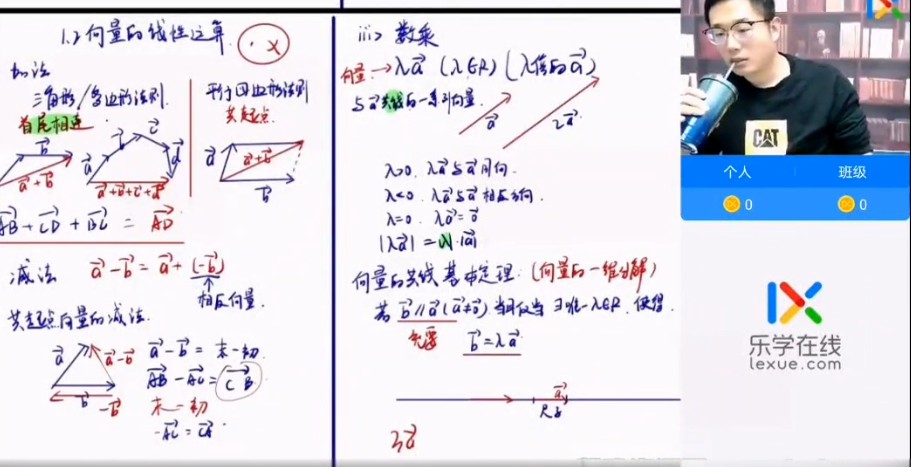 1.2 向量的线性运算
· ×
加法
三角形/多边形法则.
首尾相连
平行四边形法则
共起点.
a b a+b
a b c d a+b+c+d
a b a+b
AB+CD+BC = AD
减法 a-b = a+(-b)
相反向量.
共起点向量的减法.
a b a-b -b
a-b = 末-初.
AB-AC = CB
末-初
-AC = CA
iii> 数乘
向量.→λa (λ∈R) (λ倍的a)
与a共线的一系列向量.
a 2a
λ>0. λa与a同向.
λ<0. λa与a相反方向.
λ=0. λa=0
|λa| = |λ|·|a|
向量的共线基本定理. (向量的一维分解)
若 b∥a (a≠0) 当且仅当 ∃唯一λ∈R. 使得.
充要
b=λa
a
尺子
3a
CAT
个人 班级
0 0
乐学在线
lexue.com